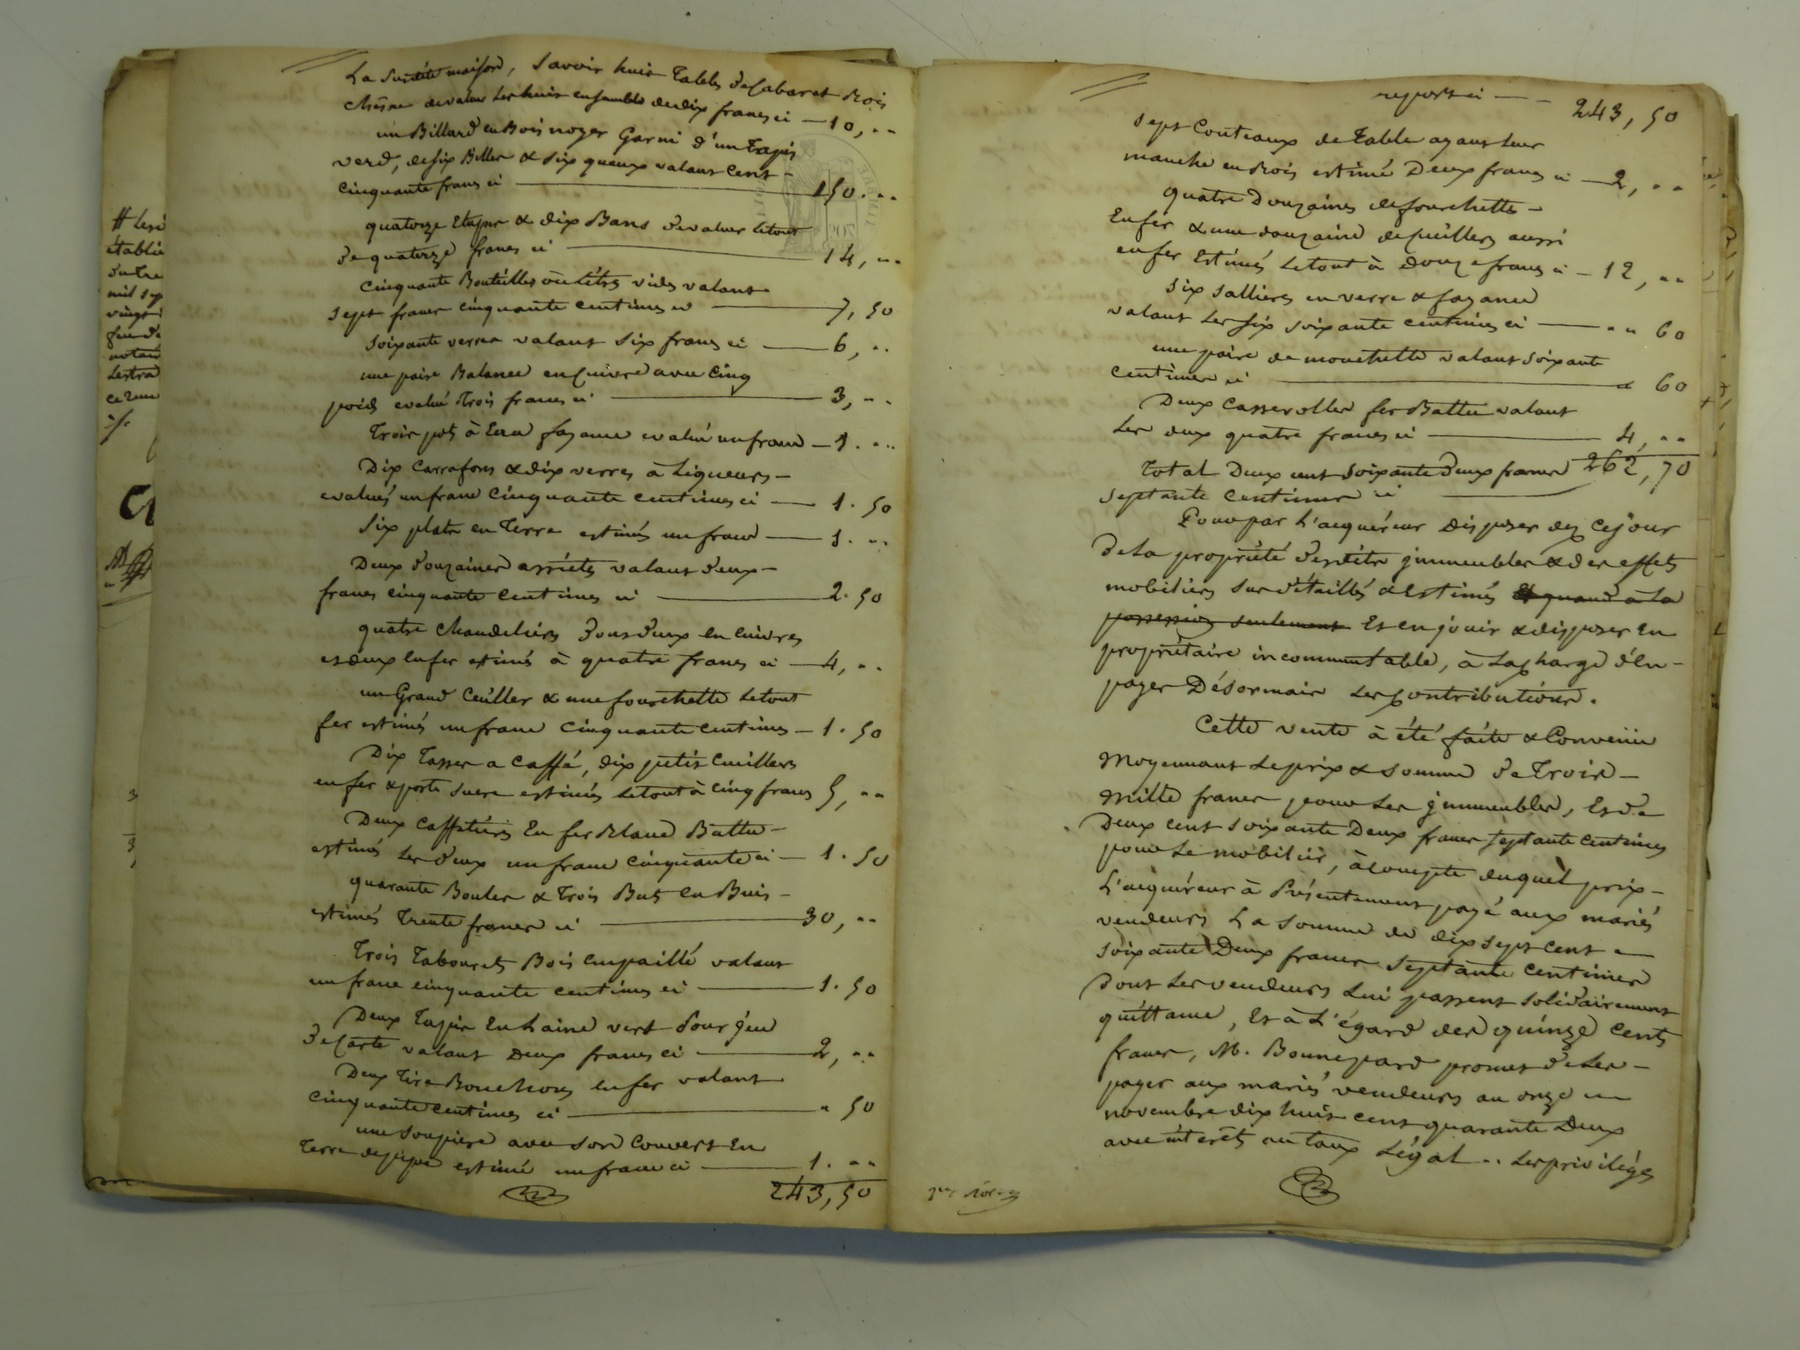 # Les i
établie
du tre
mil sep
vingt-
notai
Lestra
La susdite maison, Savoir huit Tables de Cabaret Bois
Chêne de valeur les huit ensemble de dix francs ci — 10, "
un Billard en Bois noyer Garni d'un Tapis
verd, de six Billes & six queux valant Cent -
Cinquante francs ci — 150. "
quatorze & dix Bans d'evaluer letout
de quatorze francs ci — 14, "
Cinquante Bouteilles ou litres vides valant
sept francs cinquante centimes ci — 7, 50
soixante verres valant six francs ci — 6, "
une paire Balance en Cuivre avec Cinq
poids evalué trois francs ci — 3, "
Trois pots à Eau fayance evalué un franc — 1. "
Dix Carrafons & dix verres à Liqueurs -
evalués un franc cinquante centimes ci — 1. 50
Six plats en Terre estimés un franc — 1. "
Deux douzaines assiétes valant deux -
francs cinquante Centimes ci — 2. 50
quatre Chandeliers dont deux en Cuivres
et deux en fer estimés à quatre francs ci — 4, "
un Grand Ceuller & une fourchette letout
fer estimés un franc Cinquante Centimes — 1. 50
Dix Tasses a Caffé, dix petits Cuillers
en fer & porte sucre estimés letout à cinq francs 5, "
Deux Caffetières En fer Blanc Battu -
estimés les deux un franc cinquante ci — 1. 50
quarante Boules & Trois Buts en Buis -
estimés Trente francs ci — 30, "
Trois Tabourets Bois Empaillé valant
un franc cinquante centimes ci — 1. 50
Deux Tapis En Laine vert Pour jeu
de Carte valant Deux francs ci — 2, "
Deux Tire Bouchons en fer valant
Cinquante Centimes ci — " 50
une Soupière avec son Couvert En
Terre de pipe estimé un franc ci — 1. "
243, 50
report ci — 243, 50
sept Couteaux de Table ayant leur
manche en Bois estimé Deux francs ci — 2, "
quatre Douzaines de fourchette -
En fer & une douzaine de Cuillers aussi
en fer Estimés letout à Douze francs ci — 12, "
six Sallières en verre & fayance
valant les six soixante centimes ci — " " 60
une paire de mouchette valant soixante
Centimes ci — " 60
Deux Casserolles fer Battu valant
les deux quatre francs ci — 4, "
Total Deux cent soixante deux francs 262, 70
septante Centimes ci
Pour par L'acquéreur Disposer dez Cejour
de la propriété desdits jmmeubles & des effets
mobiliers sus détaillés & Estimés Et quand à la
possession seulement Et en jouir & disposer En
propriétaire incommuntable, à La Charge d'En -
payer Désormais Les Contributions.
Cette vente à été faite & Convenue
Moyennant Le prix & Somme de Trois -
Mille francs pour Les jmmeubles, Et de
Deux cent soixante Deux francs septante Centimes
pour Le mobilier, à compte duquel prix -
L'acquéreur à Présentement payé aux mariés
vendeurs La Somme de dix sept cent
soixante Deux francs septante Centimes
Dont Les vendeurs Lui passent solidairement
quittance, Et à L'égard des quinze Cents
francs, M. Bonnepard promet de Les -
payer aux mariés vendeurs au onze
novembre dix huit cent quarante Deux
avec intérêts au taux Légal " Les privilèges